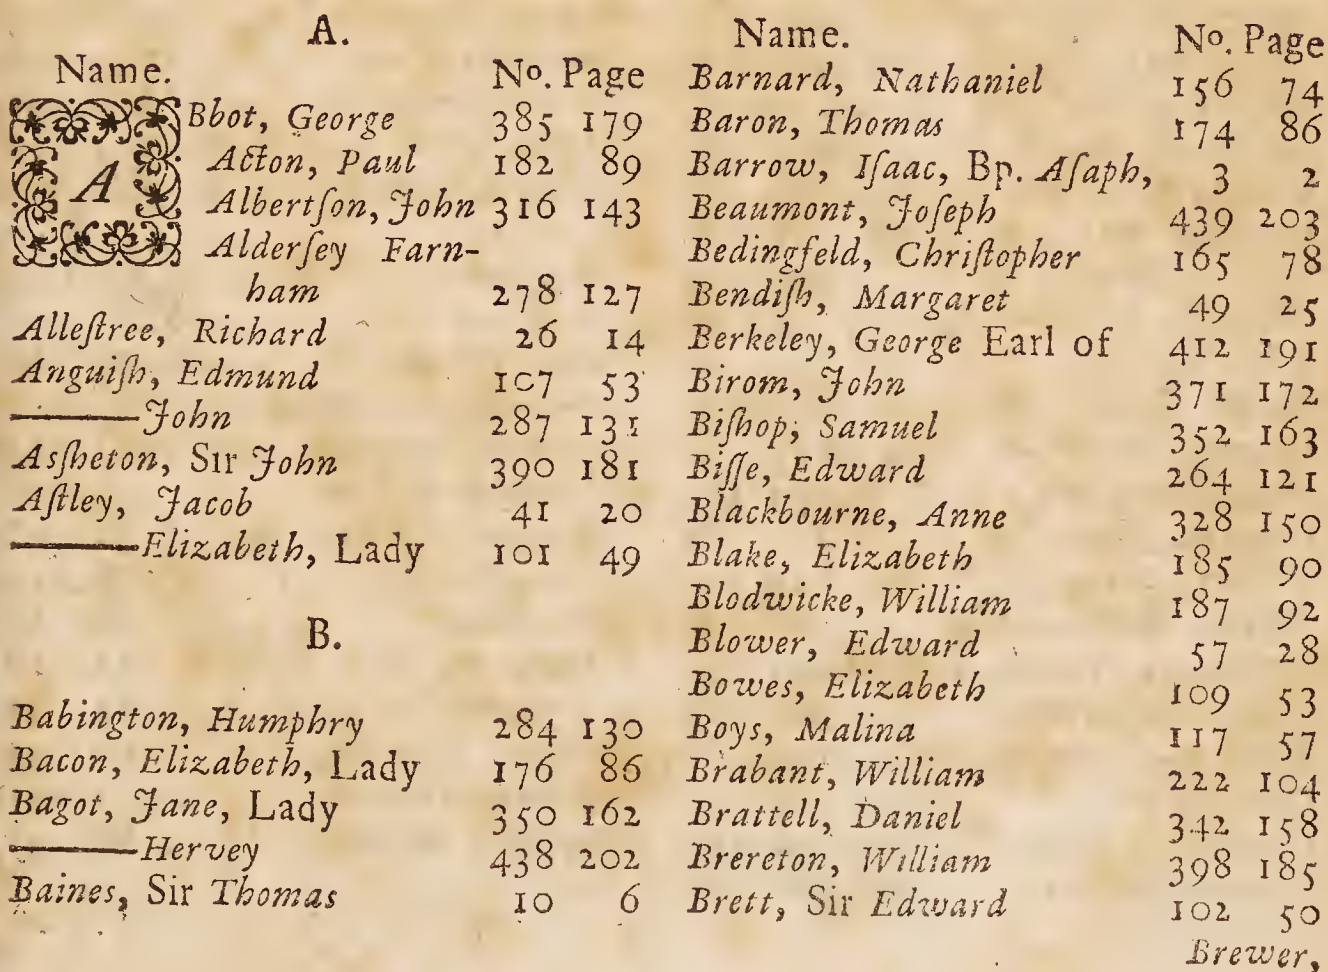 A.
Name. No. Page
ABbot, George 385 179
Acton, Paul 182 89
Albertſon, John 316 143
Alderſey Farn-
ham 278 127
Alleſtree, Richard 26 14
Anguiſh, Edmund 107 53
——John 287 131
Asſheton, Sir John 390 181
Aſtley, Jacob 41 20
——Elizabeth, Lady 101 49
B.
Babington, Humphry 284 130
Bacon, Elizabeth, Lady 176 86
Bagot, Jane, Lady 350 162
——Hervey 438 202
Baines, Sir Thomas 10 6
Name. No. Page
Barnard, Nathaniel 156 74
Baron, Thomas 174 86
Barrow, Iſaac, Bp. Aſaph, 3 2
Beaumont, Joſeph 439 203
Bedingfeld, Chriſtopher 165 78
Bendiſh, Margaret 49 25
Berkeley, George Earl of 412 191
Birom, John 371 172
Biſhop, Samuel 352 163
Biſſe, Edward 264 121
Blackbourne, Anne 328 150
Blake, Elizabeth 185 90
Blodwicke, William 187 92
Blower, Edward 57 28
Bowes, Elizabeth 109 53
Boys, Malina 117 57
Brabant, William 222 104
Brattell, Daniel 342 158
Brereton, William 398 185
Brett, Sir Edward 102 50
Brewer,